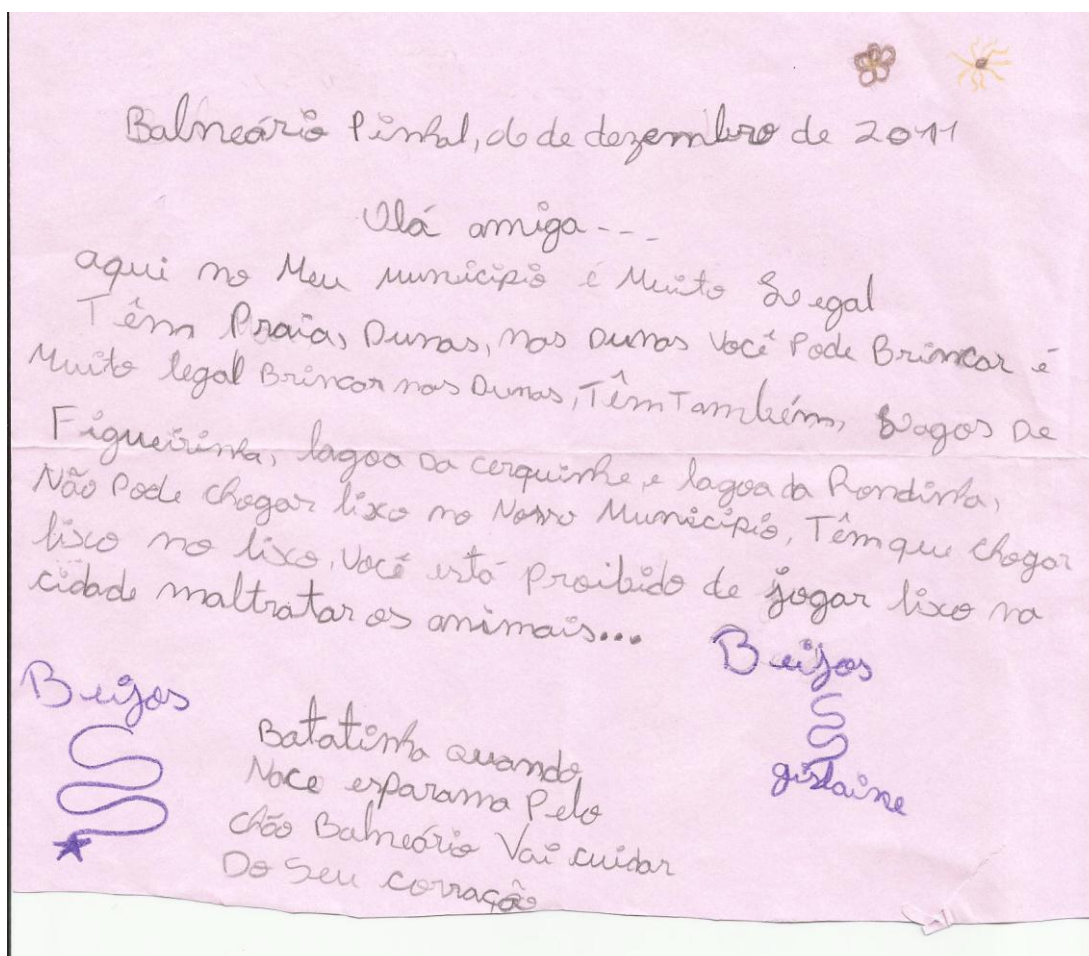 Balneário Pinhal, 06 de dezembro de 2011
Olá amiga---
aqui no Meu Município é Muito Legal
Têm Praia, Dunas, nas Dunas Você Pode Brincar é
Muito legal Brincar nas Dunas, Têm Também, Lagos De
Figueirinha, lagoa da cerquinha, e lagoa da Rondinha,
Não Pode chogar lixo no Nosso Município, Têm que chogar
lixo no lixo, Você está Proibido de jogar lixo na
cidade maltratar os animais...
Beijos
gislaine
Beijos
Batatinha quando
Nace esparama Pelo
chão Balneário Vai cuidar
Do Seu corração